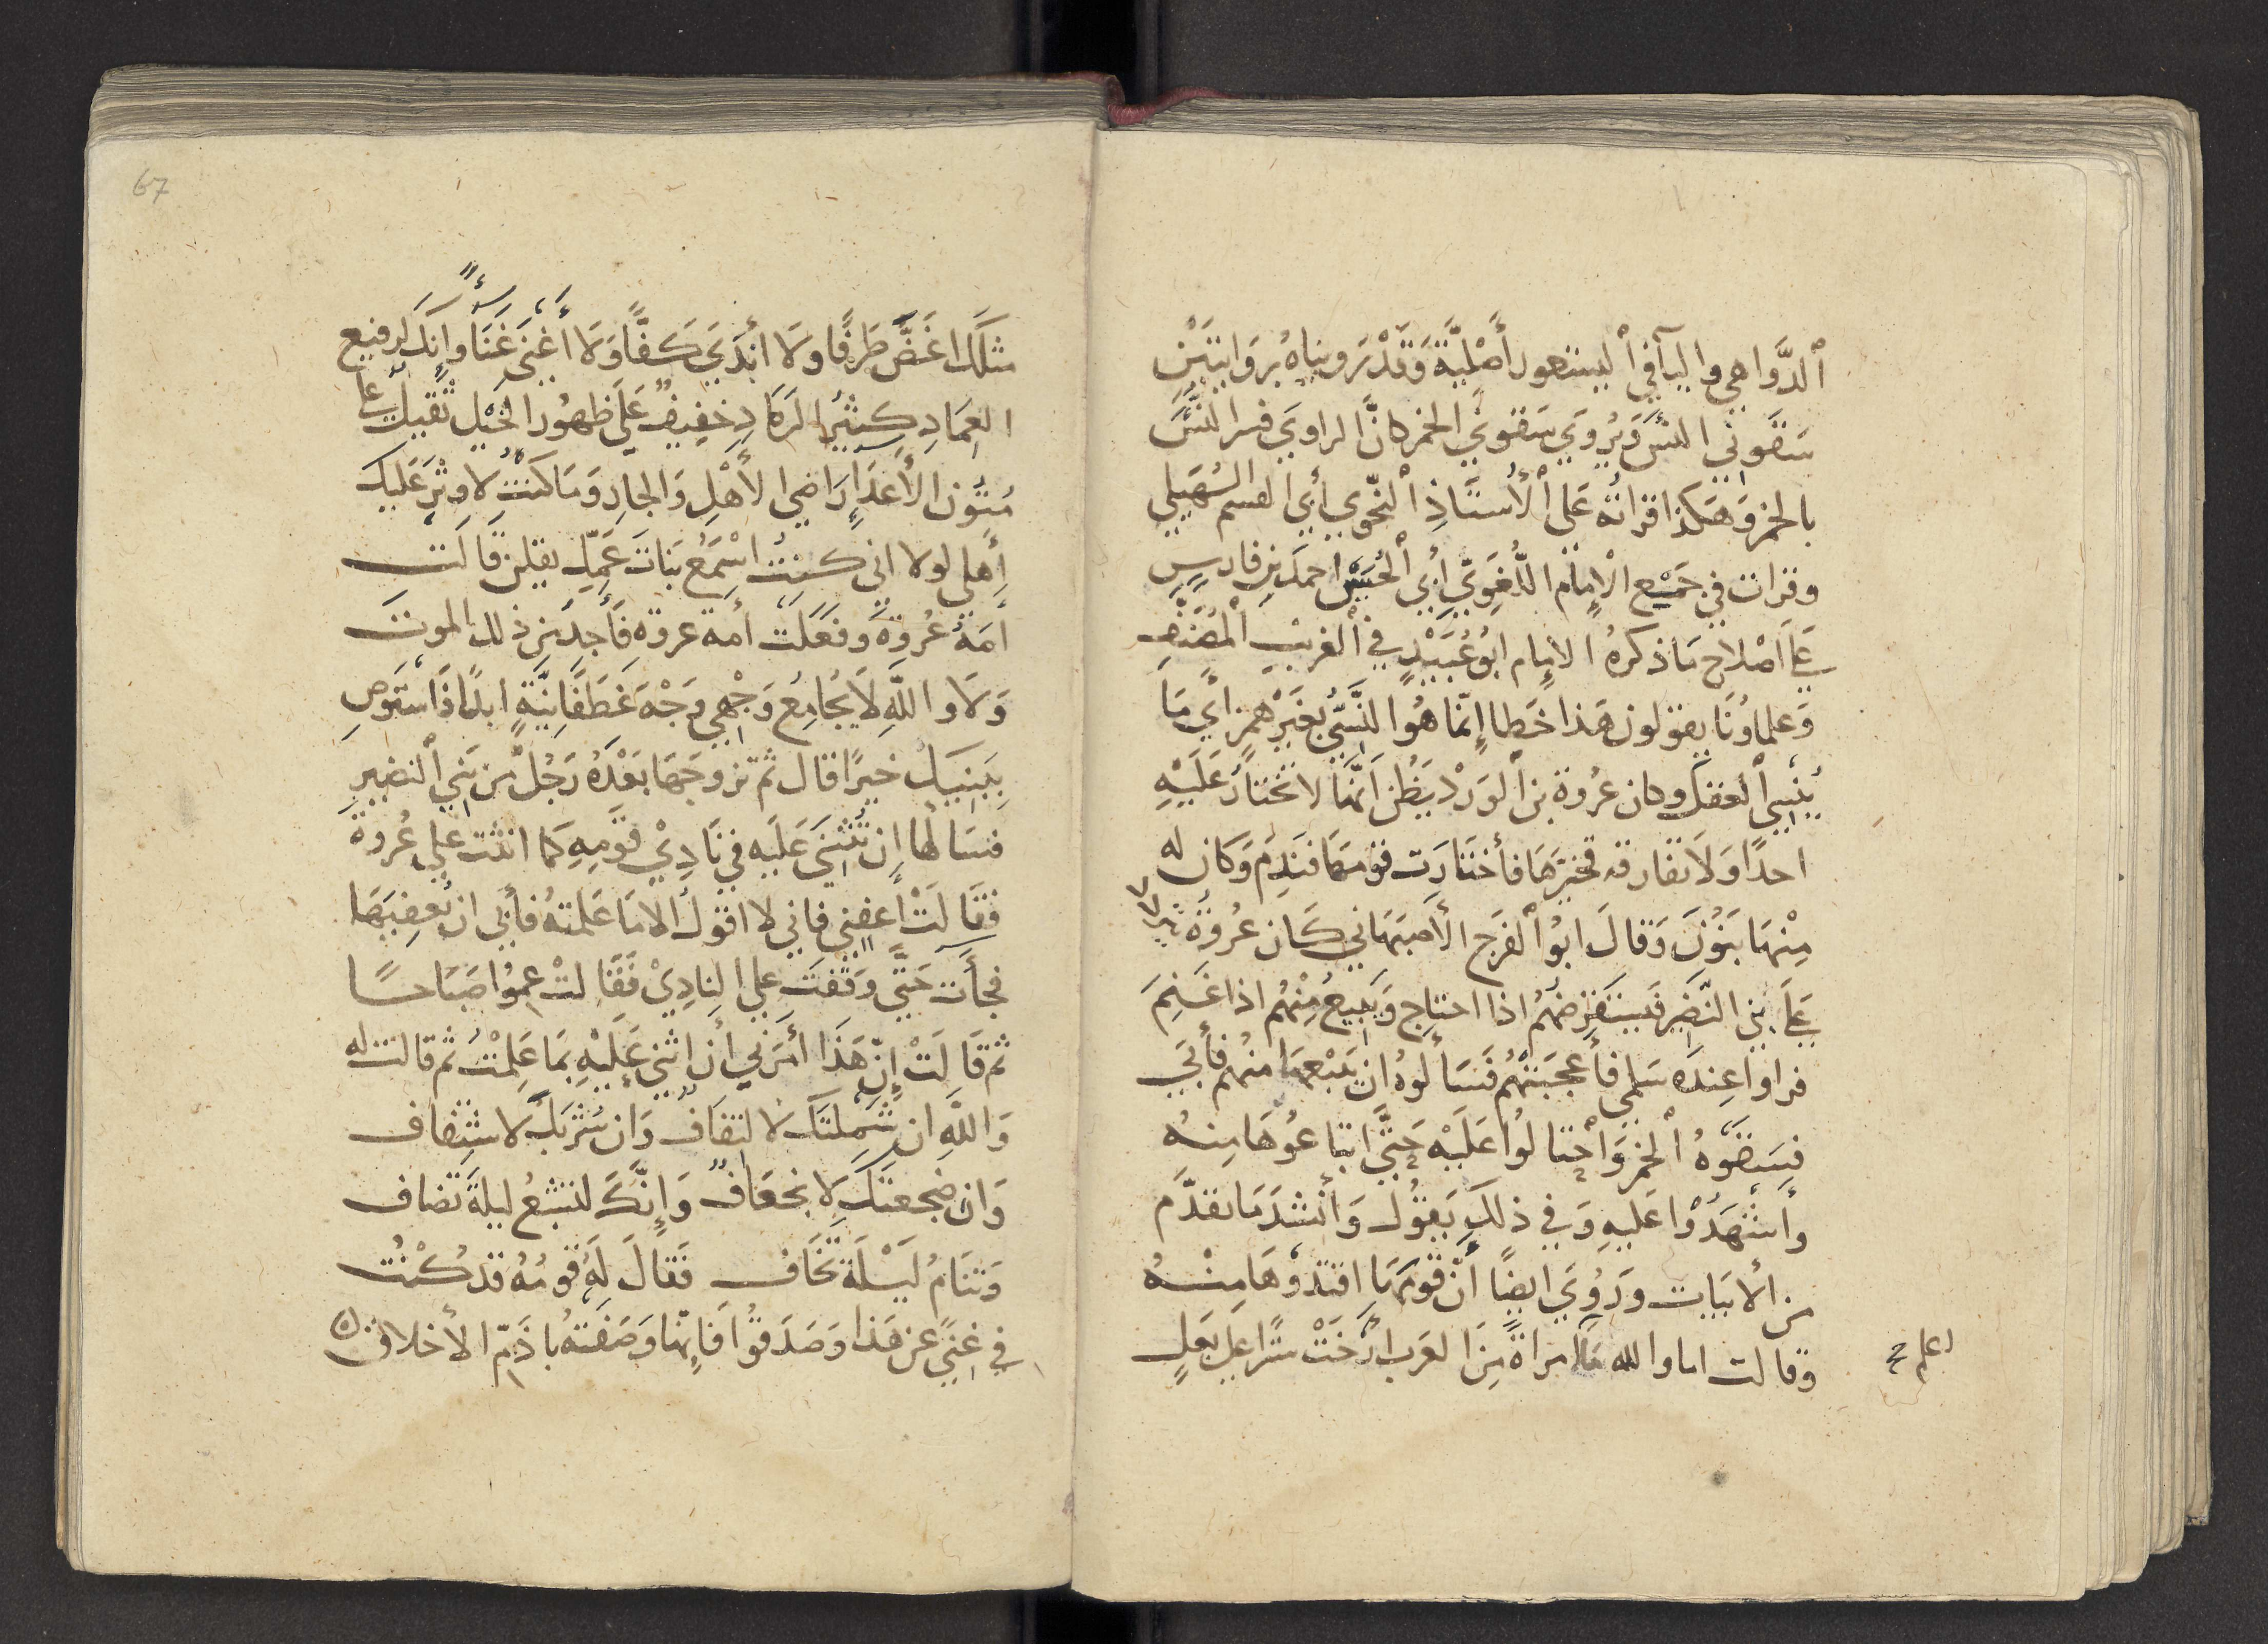 ٱلدَّوَاهِي واليآ في ٱليستعور أَصْلِيَّة وَقَدْ رَويناهُ بروَايتَيْنِ
سَقَوني النَّسَ وَيُروَى سَقَوني الخمر كانَّ الراوي فسر النَّسَ
بالخمر وَهَكذا قرأتهُ عَلى ٱلأُستَاذِ ٱلنَّحوي أبي القسم السُهَيلي
وقرات في جَميْع الإمام اللُّغَوِيّ أبي الحُسَيْن احمَد بْن فارسٍ
عَلَى اصْلاح مَا ذكرهُ الإمام ابُو عُبَيْدٍ في ٱلغريب ٱلمُصَنَّفِ
وَعلماونَا يقولون هَذا خَطا إنّما هُوا النَّسيُ بغَيْر همز اي مَا
يُنسي ٱلعقل وكان عُروَة بن ٱلوَرْد يَظُن اَنَّهَا لا تختارُ عَلَيْهِ
احدًا وَلَا تفارقه فخيَّرَهَا فأختَارَت قومهَا فنَدِمَ وَكان له
مِنْهَا بَنُونَ وَقالَ ابُو ٱلفَرج الأصبَهاني كَان عُروَةُ
عَلَى بني النَّضِير فيَستَقرضهُم اذا احتاج وَيَبيعُ مِنْهُم اذا غَنِمَ
فراوا عِندَه سَلمى فأعجَبَتْهُم فَسَألوهُ ان يَبْعهَا منهُم فأبَى
فسَقَوْهُ ٱلخمر وَٱحتالُوا عَليْه حَتَّى ابتاعُوهَا مِنهُ
وأشْهَدُوْا عَليهِ وَفي ذلكَ يَقُول وَأنْشدَ مَا تقدَّم
من ألابيات وَرُويَ ايضًا أنّ قومَهَا افتدَوْهَا مِنْهُ
وقالت اما والله مَا اعلم امراةً مِنَ العَرَب أَرْخَتْ سترًا عَلى بَعلٍ
اعلم صح
67
مثلكَ اغَضَّ طَرفًا ولَا أندَى كَفًّا وَلا أغنى غَنَاءً وإنك لرفيع
العِمَادِ كثيْر الرَمَادِ خفيفٌ عَلَى ظهُور الخيْل ثقيلٌ على
مُتُون الأعدَاءِ رَاضي الأهْلِ وَالجارِ وَمَا كنتُ لأوثرَ عَليك
أهلي لولا اني كنتُ اسْمَعُ بَناتَ عَمِّك يقلن قالت
أمَةُ عُروَةَ وفعَلَت أمة عروة فأجدُ مِن ذلك الموت
وَلَا واللّهِ لا يُجَامِعُ وَجْهي وَجْهَ غَطَفانيَّةٍ ابدًا فاسْتَوصِ
بِبَنيكَ خيرًا قال ثم تزوجَهَا بَعْدَهُ رَجُل من بَنِي النضير
فسَالهَا إن تُثْنيَ عَليَه في نَادِيْ قَوْمِهِ كمَا اثنَت عَلى عُروَةَ
فقَالَتْ أعفِني فاني لا اقولُ الا مَا عَلمتهُ فأبى ان يُعفِيَهَا
فجأَت حَتَّى وَقَفَت على النادِيْ فَقَالَتْ عِمُوا صَبَاحًا
ثم قَالَتْ إنّ هَذَا أمَرَني أن اثني عَليْهِ بمَا عَلِمْتُ ثم قالت له
وَاللّهِ ان شَمْلتَك لالتفافٌ وَان شربَكَ لاشتفاف
وَان ضِجعتَكَ لانجعَافٌ وَإنَّكَ لتشبَعُ ليلةَ تضاف
وَتنَامُ لَيْلَة تخَاف فقالَ لَهُ قومُهُ قد كُنتَ
في غنًى عن هَذا وَصَدَقوا فَإنهَا وَصَفَتهُ باذَمّ الأخلاق